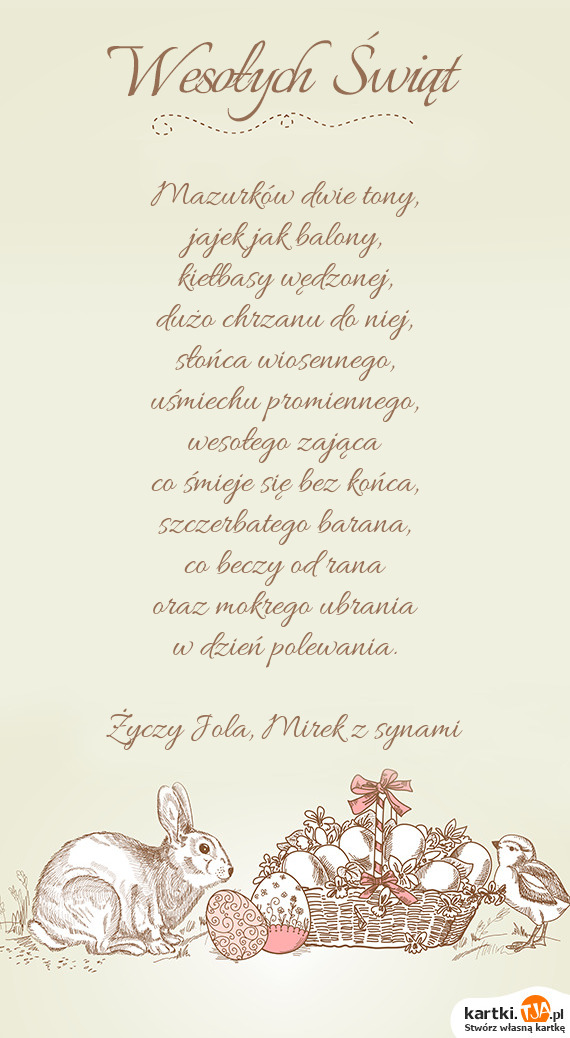 Wesołych Świąt
Mazurków dwie tony,
jajek jak balony,
kiełbasy wędzonej,
dużo chrzanu do niej,
słońca wiosennego,
uśmiechu promiennego,
wesołego zająca
co śmieje się bez końca,
szczerbatego barana,
co beczy od rana
oraz mokrego ubrania
w dzień polewania.
Życzy Jola, Mirek z synami
kartki.TJA.pl
Stwórz własną kartkę